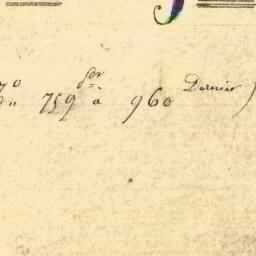 N.º 759 for à 960 Dernier)